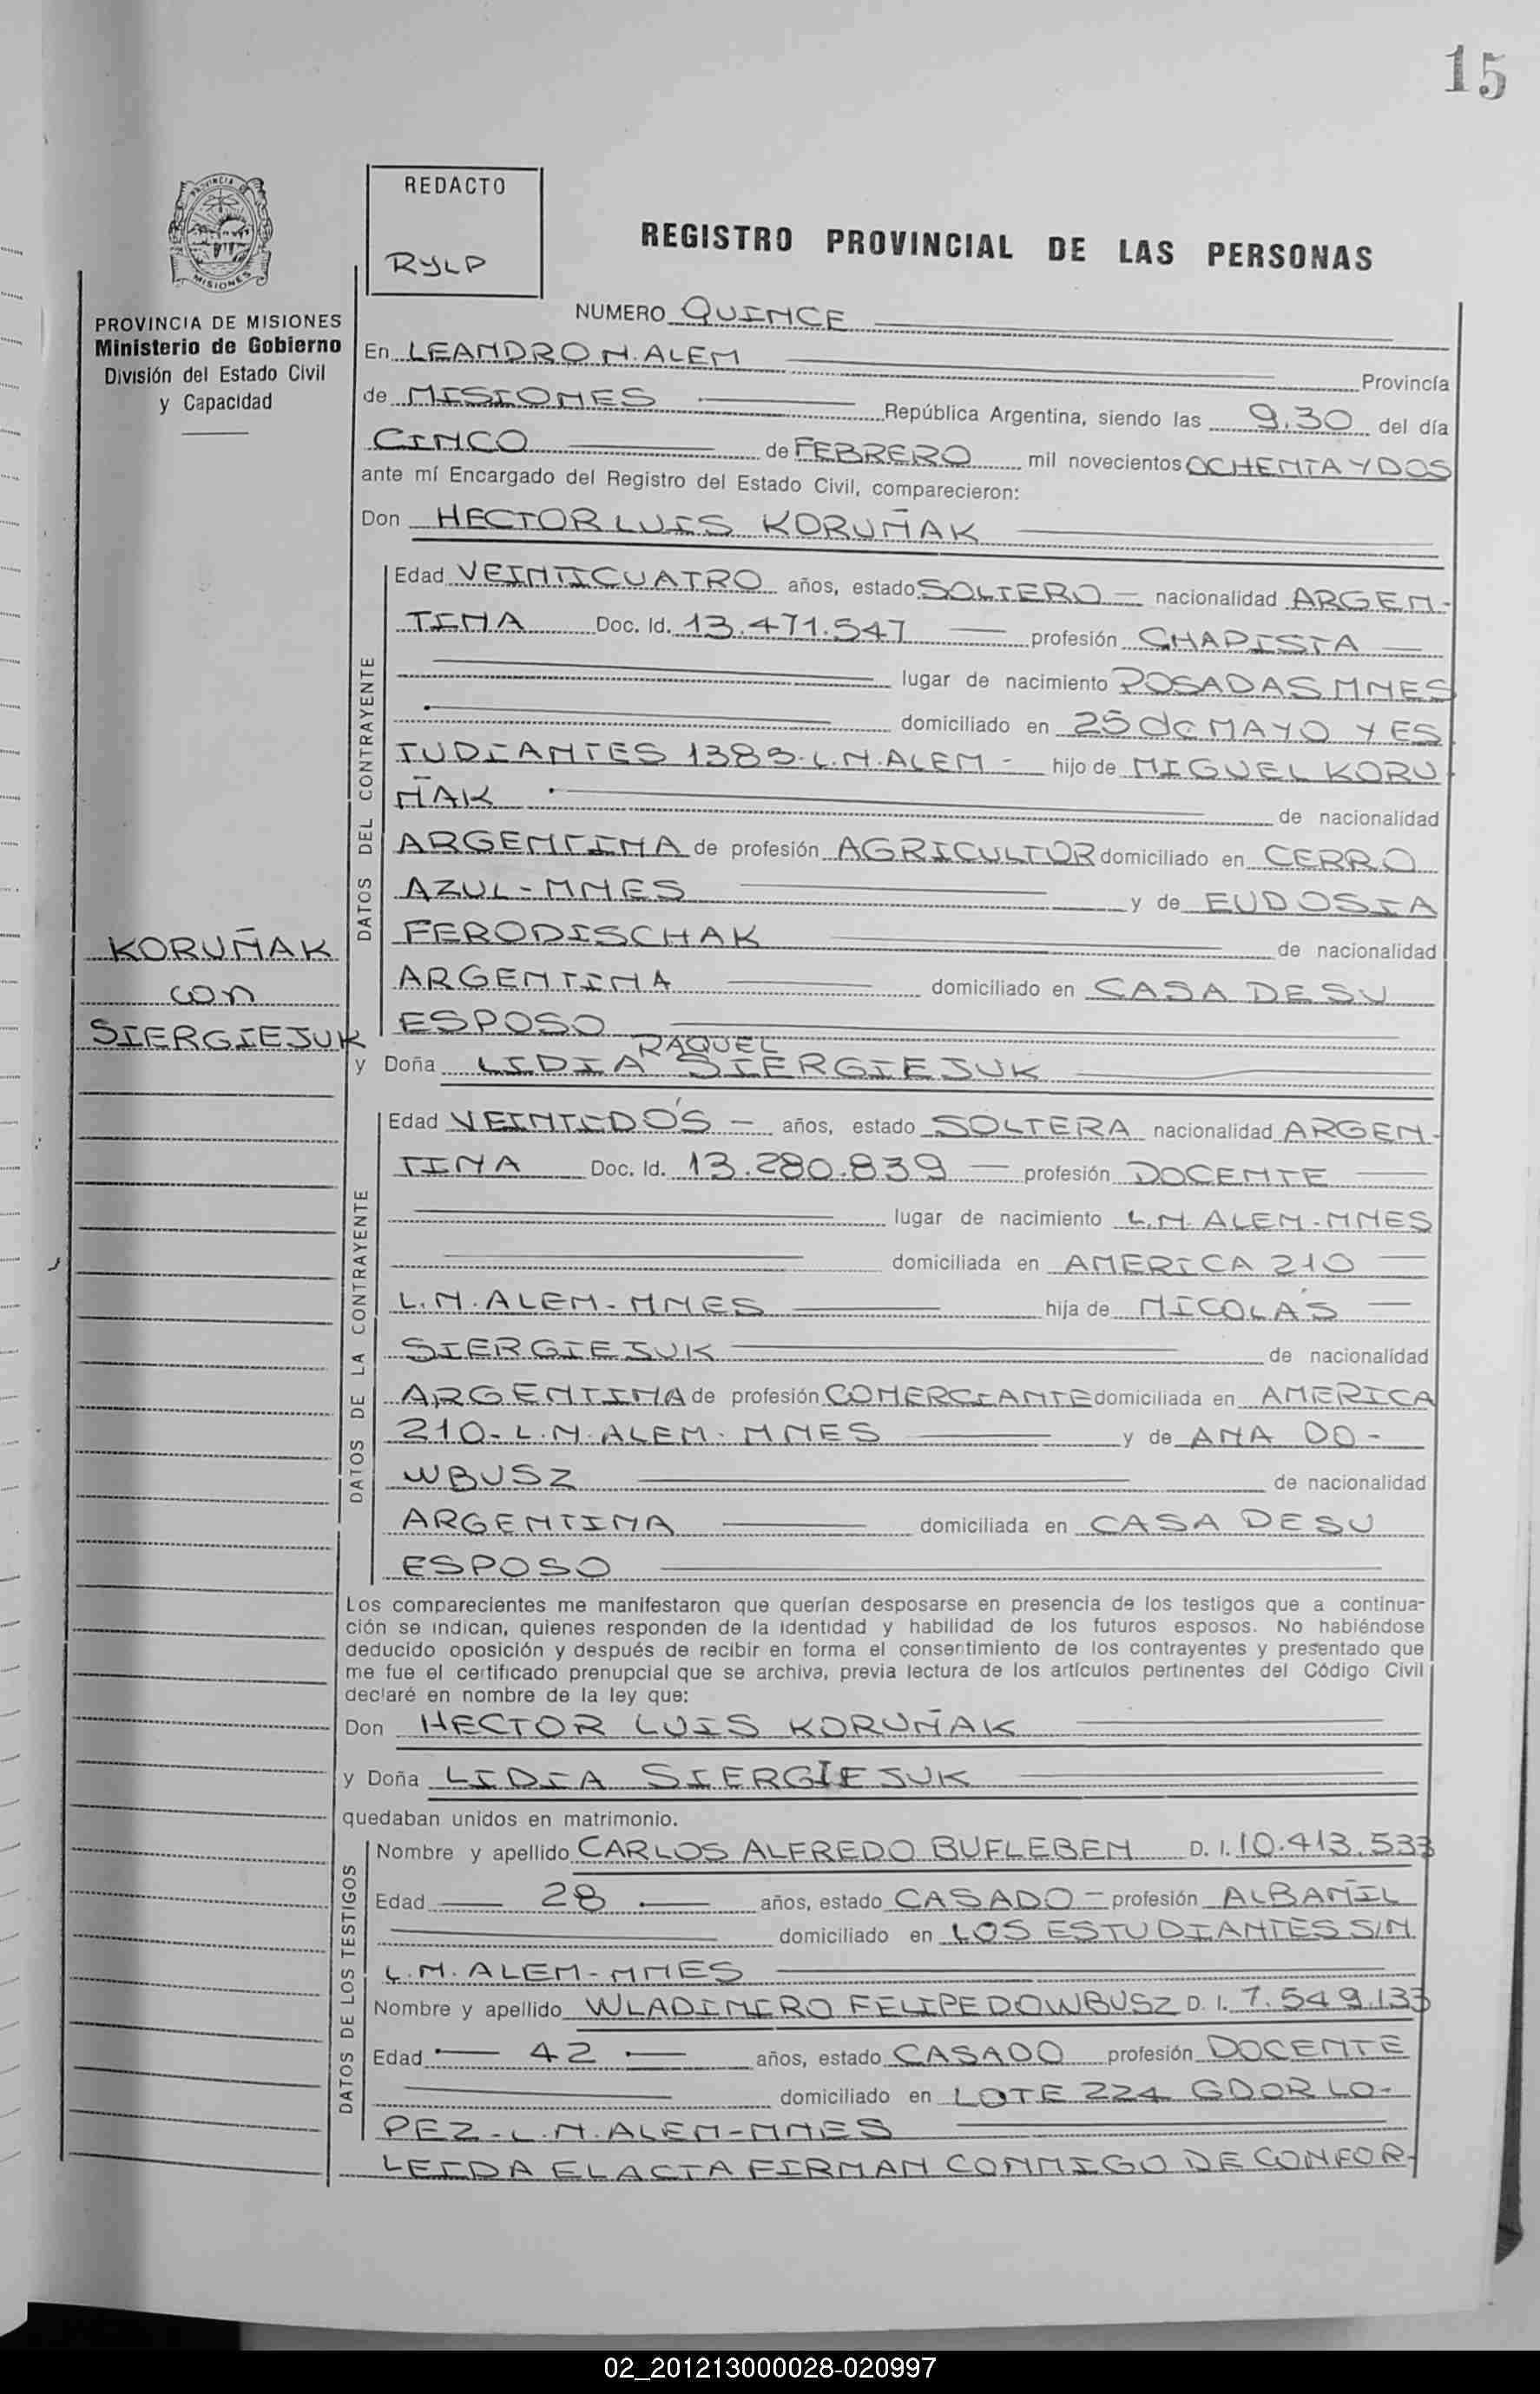 15
PROVINCIA DE
MISIONES
PROVINCIA DE MISIONES
Ministerio de Gobierno
División del Estado Civil
y Capacidad
REDACTO
RYLP
REGISTRO PROVINCIAL DE LAS PERSONAS
NUMERO QUINCE
En LEANDRO N. ALEM Provincia
de MISIONES República Argentina, siendo las 9.30 del día
CINCO de FEBRERO mil novecientos OCHENTA Y DOS
ante mí Encargado del Registro del Estado Civil, comparecieron:
Don HECTOR LUIS KORUÑAK
DATOS DEL CONTRAYENTE
Edad VEINTICUATRO años, estado SOLTERO - nacionalidad ARGEN-
TINA Doc. Id. 13.471.547 profesión CHAPISTA
lugar de nacimiento POSADAS MNES
domiciliado en 25 de MAYO Y ES
TUDIANTES 1383-L.N.ALEM - hijo de MIGUEL KORU
ÑAK de nacionalidad
ARGENTINA de profesión AGRICULTOR domiciliado en CERRO
AZUL-MNES y de EUDOSIA
FERODISCHAK de nacionalidad
ARGENTINA domiciliado en CASA DE SU
ESPOSO
KORUÑAK
con
SIERGIEJUK
RAQUEL
y Doña LIDIA SIERGIEJUK
DATOS DE LA CONTRAYENTE
Edad VEINTIDÓS - años, estado SOLTERA nacionalidad ARGEN-
TINA Doc. Id. 13.280.839 profesión DOCENTE
lugar de nacimiento L.N. ALEM-MNES
domiciliada en AMERICA 210
L.N.ALEM-MNES hija de NICOLÁS
SIERGIEJUK de nacionalidad
ARGENTINA de profesión COMERCIANTE domiciliada en AMERICA
210-L.N.ALEM-MNES y de ANA DO-
WBUSZ de nacionalidad
ARGENTINA domiciliada en CASA DE SU
ESPOSO
Los comparecientes me manifestaron que querían desposarse en presencia de los testigos que a continua-
ción se indican, quienes responden de la identidad y habilidad de los futuros esposos. No habiéndose
deducido oposición y después de recibir en forma el consentimiento de los contrayentes y presentado que
me fue el certificado prenupcial que se archiva, previa lectura de los artículos pertinentes del Código Civil
declaré en nombre de la ley que:
Don HECTOR LUIS KORUÑAK
y Doña LIDIA SIERGIEJUK
quedaban unidos en matrimonio.
DATOS DE LOS TESTIGOS
Nombre y apellido CARLOS ALFREDO BUFLEBEN D. I. 10.413.533
Edad 28 años, estado CASADO - profesión ALBAÑIL
domiciliado en LOS ESTUDIANTES S/N
L.N.ALEM-MNES
Nombre y apellido WLADIMIRO FELIPE DOWBUSZ D. I. 7.549.133
Edad 42 años, estado CASADO profesión DOCENTE
domiciliado en LOTE 224 GDOR LO-
PEZ-L.N.ALEM-MNES
LEIDA EL ACTA FIRMAN CONMIGO DE CONFOR-
02_201213000028-020997